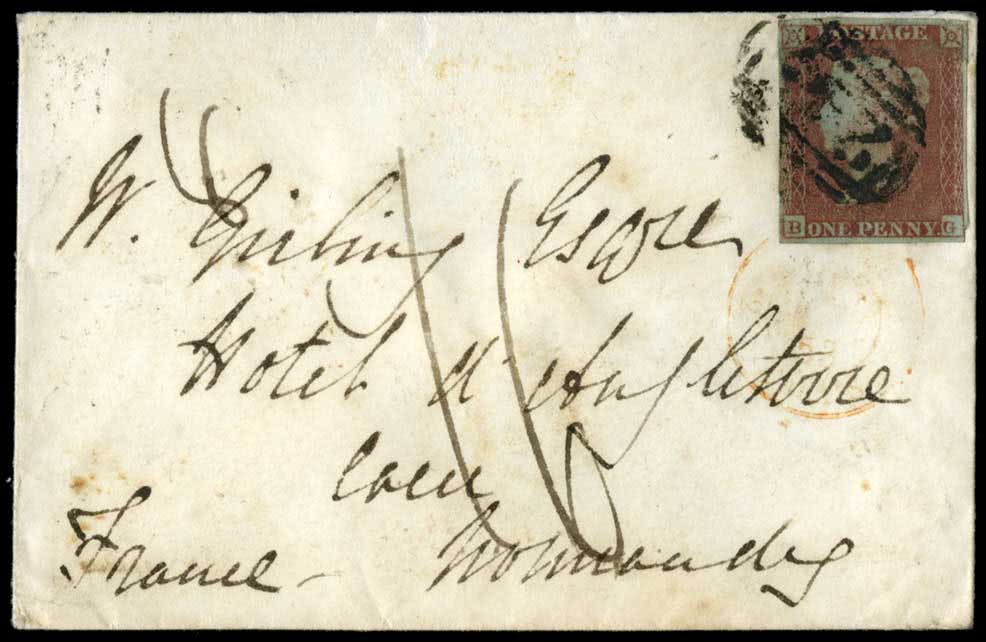 POSTAGE
B ONE PENNY G
W. Girling Esqre
Hotel d'Angleterre
Caen
France - Normandy